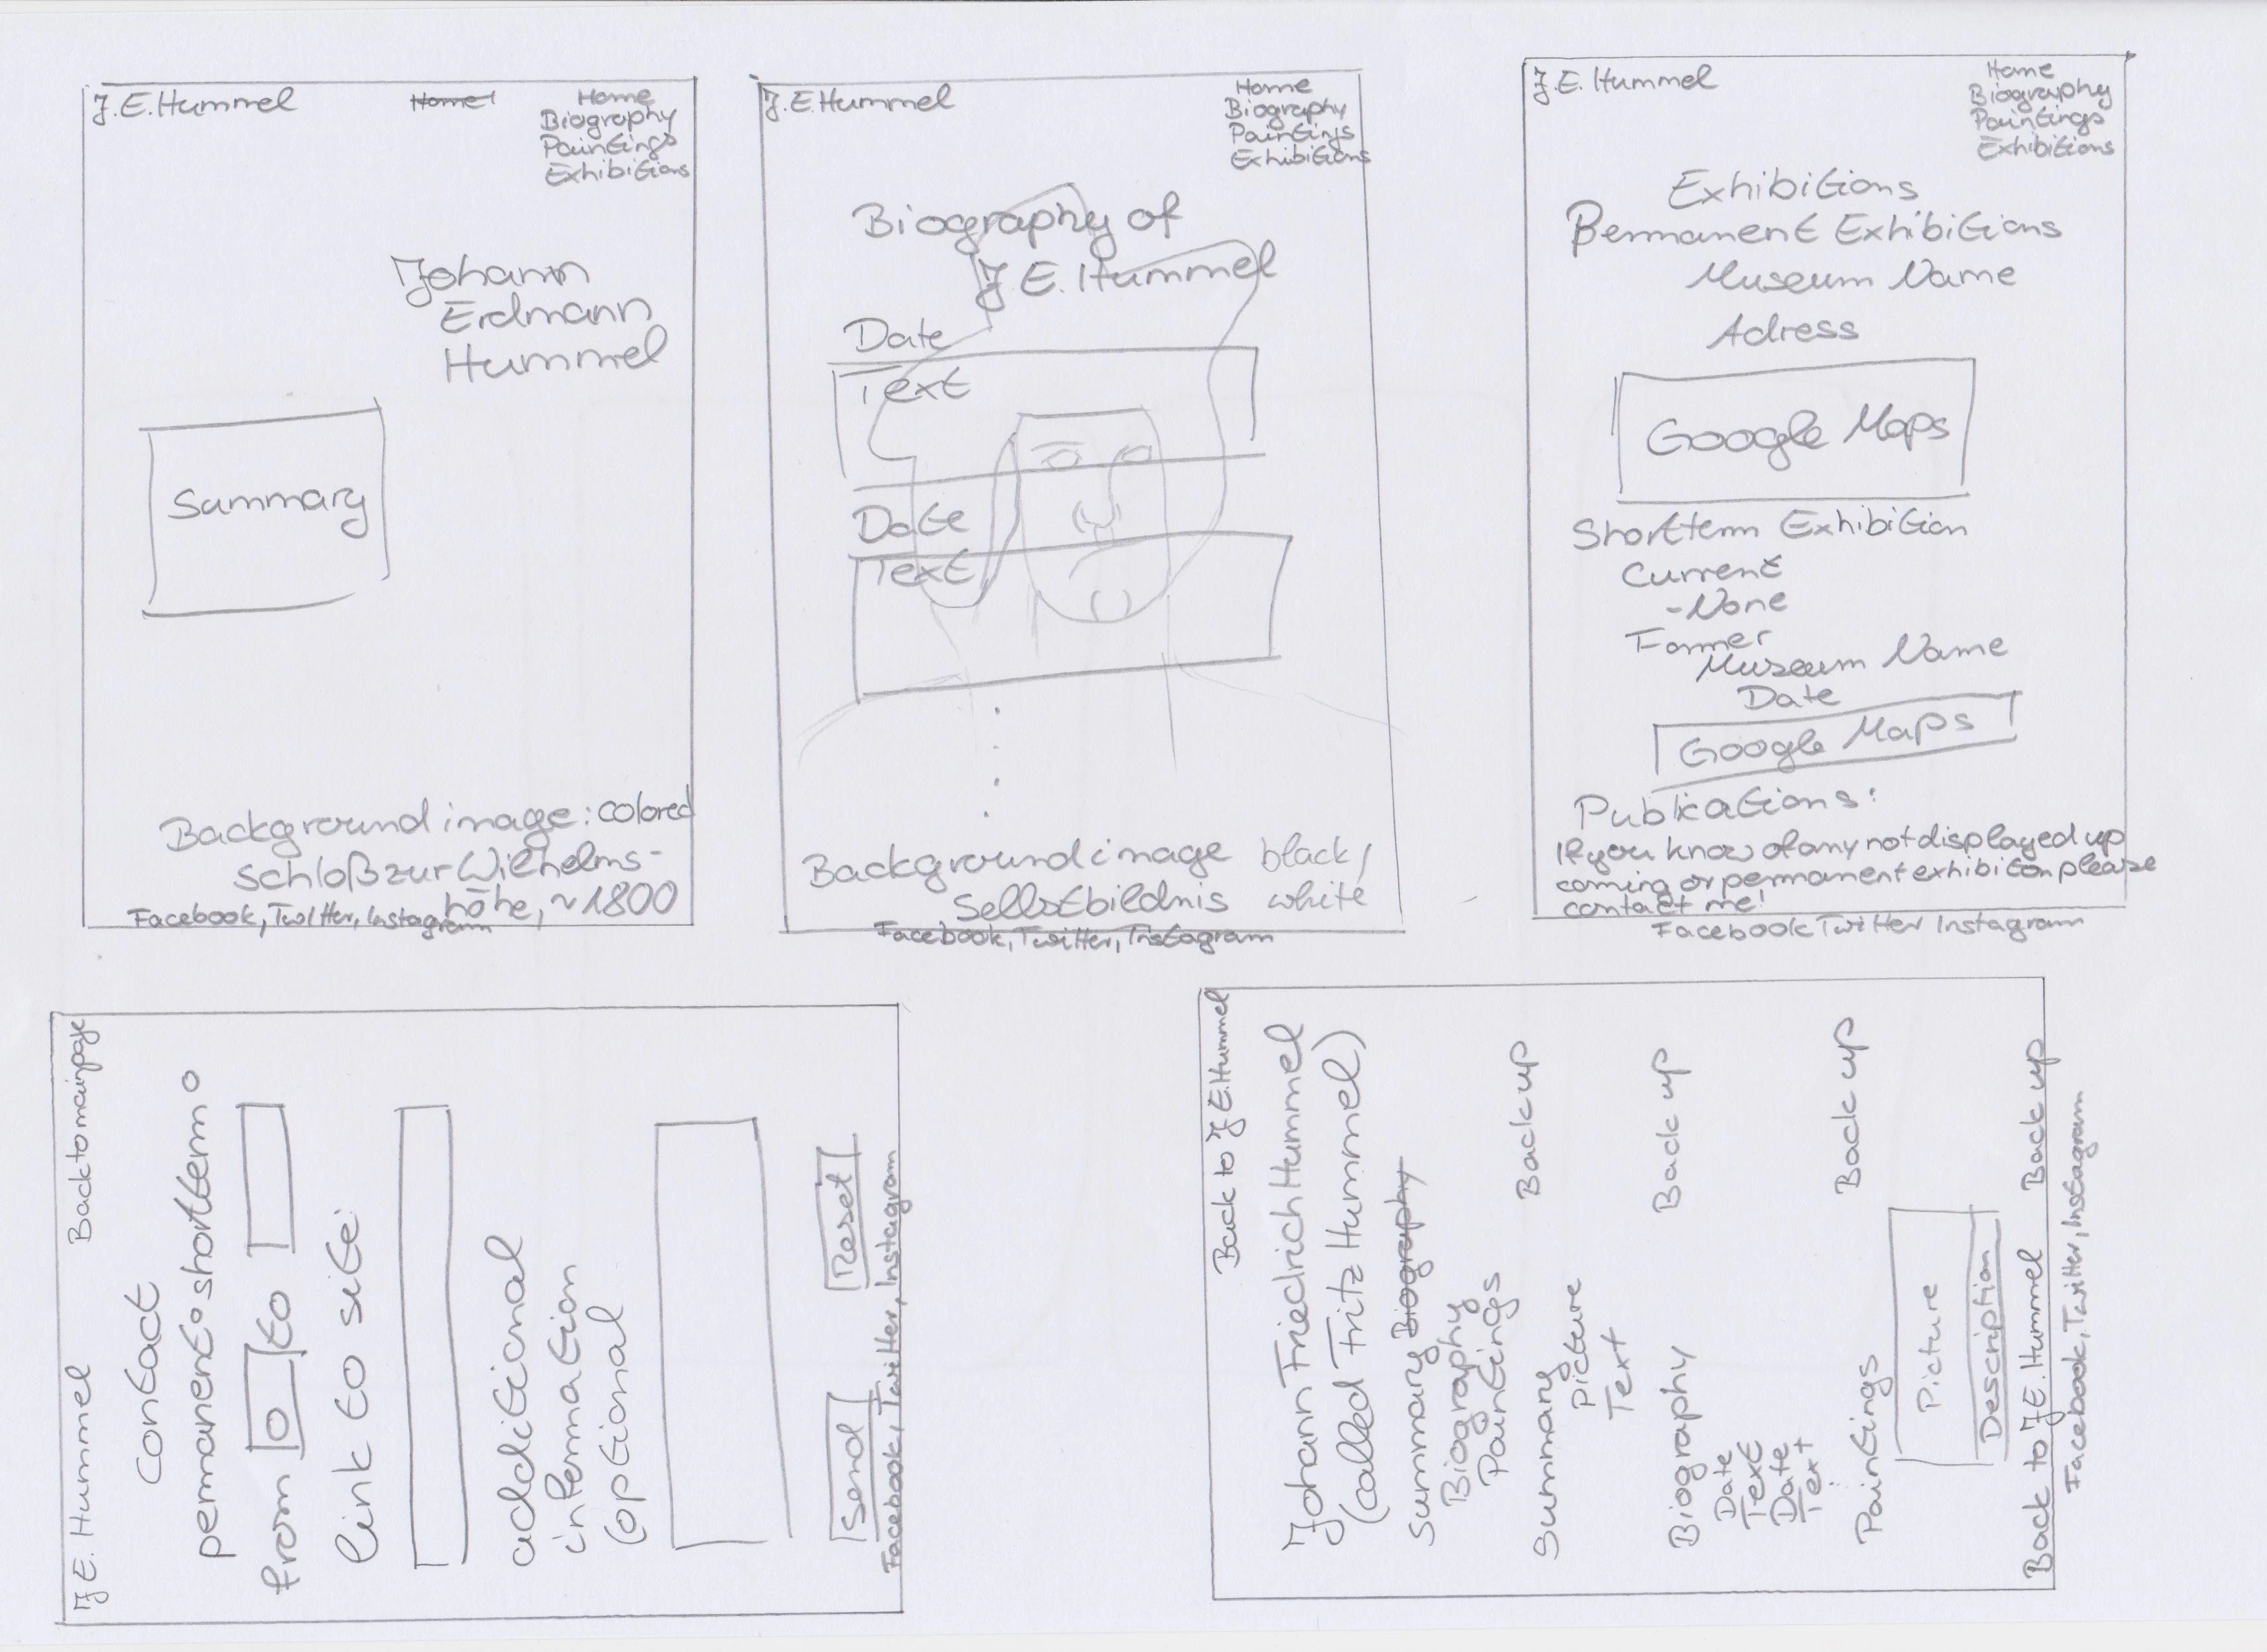 J.E. Hummel
Home
Home
Biography
Paintings
Exhibitions
Johann
Erdmann
Hummel
Summary
Background image: colored
Schloß zur Wilhelms-
höhe, ~1800
Facebook, Twitter, Instagram
J.E Hummel
Home
Biography
Paintings
Exhibitions
Biography of
J E. Hummel
Date
Text
Date
Text
Background image black/
Selbstbildnis white
Facebook, Twitter, Instagram
J.E. Hummel
Home
Biography
Paintings
Exhibitions
Exhibitions
Permanent Exhibitions
Museum Name
Adress
Google Maps
Shortterm Exhibition
Current
-None
Former
Museum Name
Date
Google Maps
Publications:
If you know of any not displayed up
coming or permanent exhibition please
contact me!
Facebook Twitter Instagram
J E. Hummel Back to mainpage
Contact
permanent o shortterm o
from to
link to site:
additional
information
(optional
Send Reset
Facebook, Twitter, Instagram
Back to J E. Hummel
Johann Friedrich Hummel
(called Fritz Hummel)
Summary Biography
Biography
Paintings
Back up
Summary
Picture
Text
Back up
Biography
Date
Text
Date
Text
Back up
Paintings
Picture
Description
Back to J E. Hummel Back up
Facebook, Twitter, Instagram